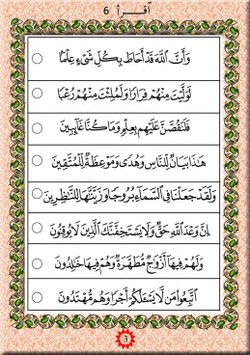 أقرأ 6
وَأَنَّ ٱللَّهَ قَدْ أَحَاطَ بِكُلِّ شَىْءٍ عِلْمًا
لَوَلَّيْتَ مِنْهُمْ فِرَارًا وَلَمُلِئْتَ مِنْهُمْ رُعْبًا
فَلَنَقُصَّنَّ عَلَيْهِم بِعِلْمٍ وَمَا كُنَّا غَآئِبِينَ
هَٰذَا بَيَانٌ لِّلنَّاسِ وَهُدًى وَمَوْعِظَةٌ لِّلْمُتَّقِينَ
وَلَقَدْ جَعَلْنَا فِى ٱلسَّمَآءِ بُرُوجًا وَزَيَّنَّٰهَا لِلنَّٰظِرِينَ
إِنَّ وَعْدَ ٱللَّهِ حَقٌّ وَلَا يَسْتَخِفَّنَّكَ ٱلَّذِينَ لَا يُوقِنُونَ
وَلَهُمْ فِيهَآ أَزْوَٰجٌ مُّطَهَّرَةٌ وَهُمْ فِيهَا خَٰلِدُونَ
ٱتَّبِعُوا۟ مَن لَّا يَسْـَٔلُكُمْ أَجْرًا وَهُم مُّهْتَدُونَ
3